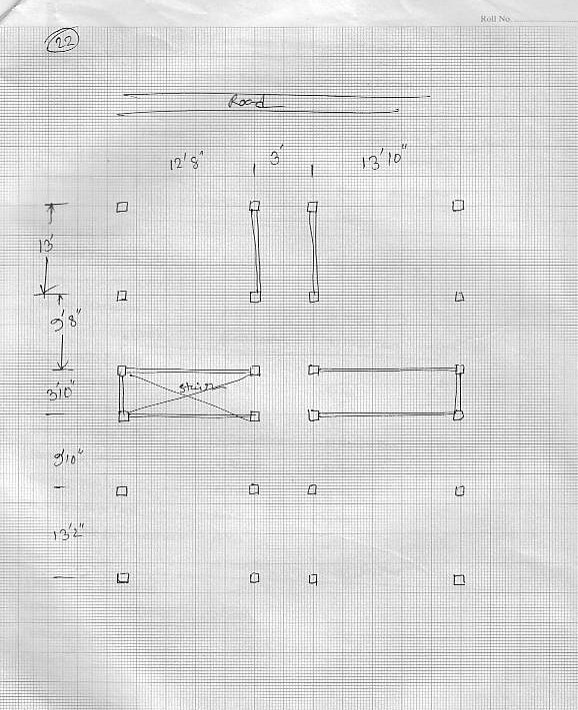 Roll No.
22
Road
12'8" 3' 13'10"
13'
9'8"
3'10"
9'10"
13'2"